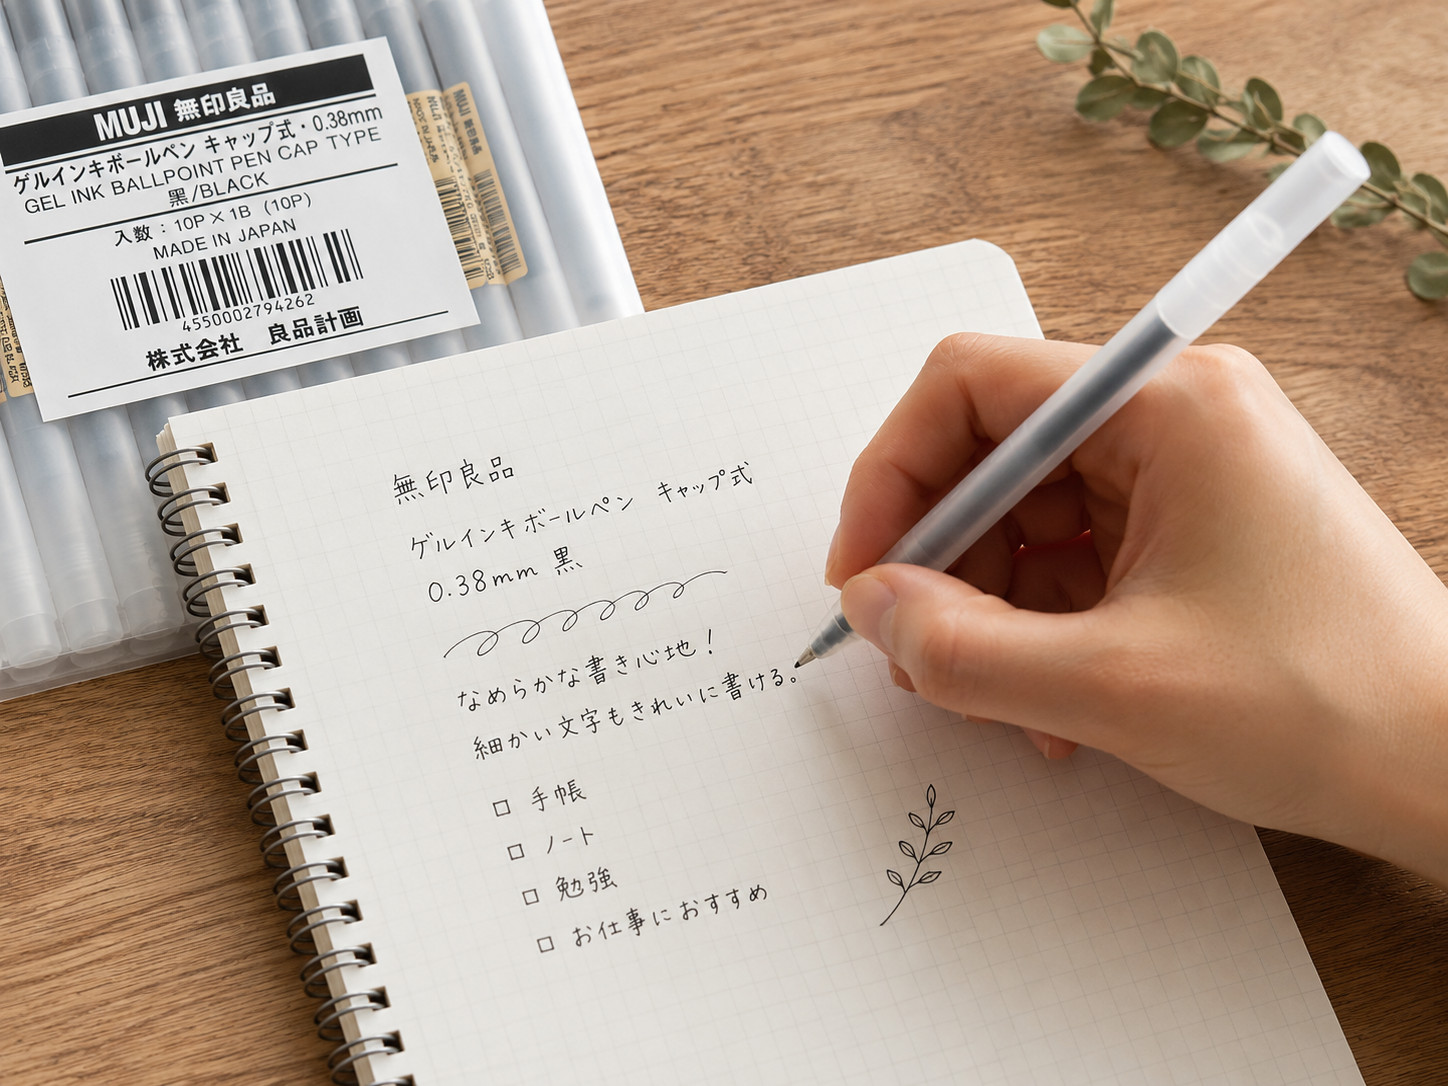 MUJI 無印良品
ゲルインキボールペン キャップ式・0.38mm
GEL INK BALLPOINT PEN CAP TYPE
黒/BLACK
入数：10P×1B (10P)
MADE IN JAPAN
4550002794262
株式会社 良品計画
MUJI 無印良品
無印良品
ゲルインキボールペン キャップ式
0.38mm 黒
なめらかな書き心地！
細かい文字もきれいに書ける。
□ 手帳
□ ノート
□ 勉強
□ お仕事におすすめ